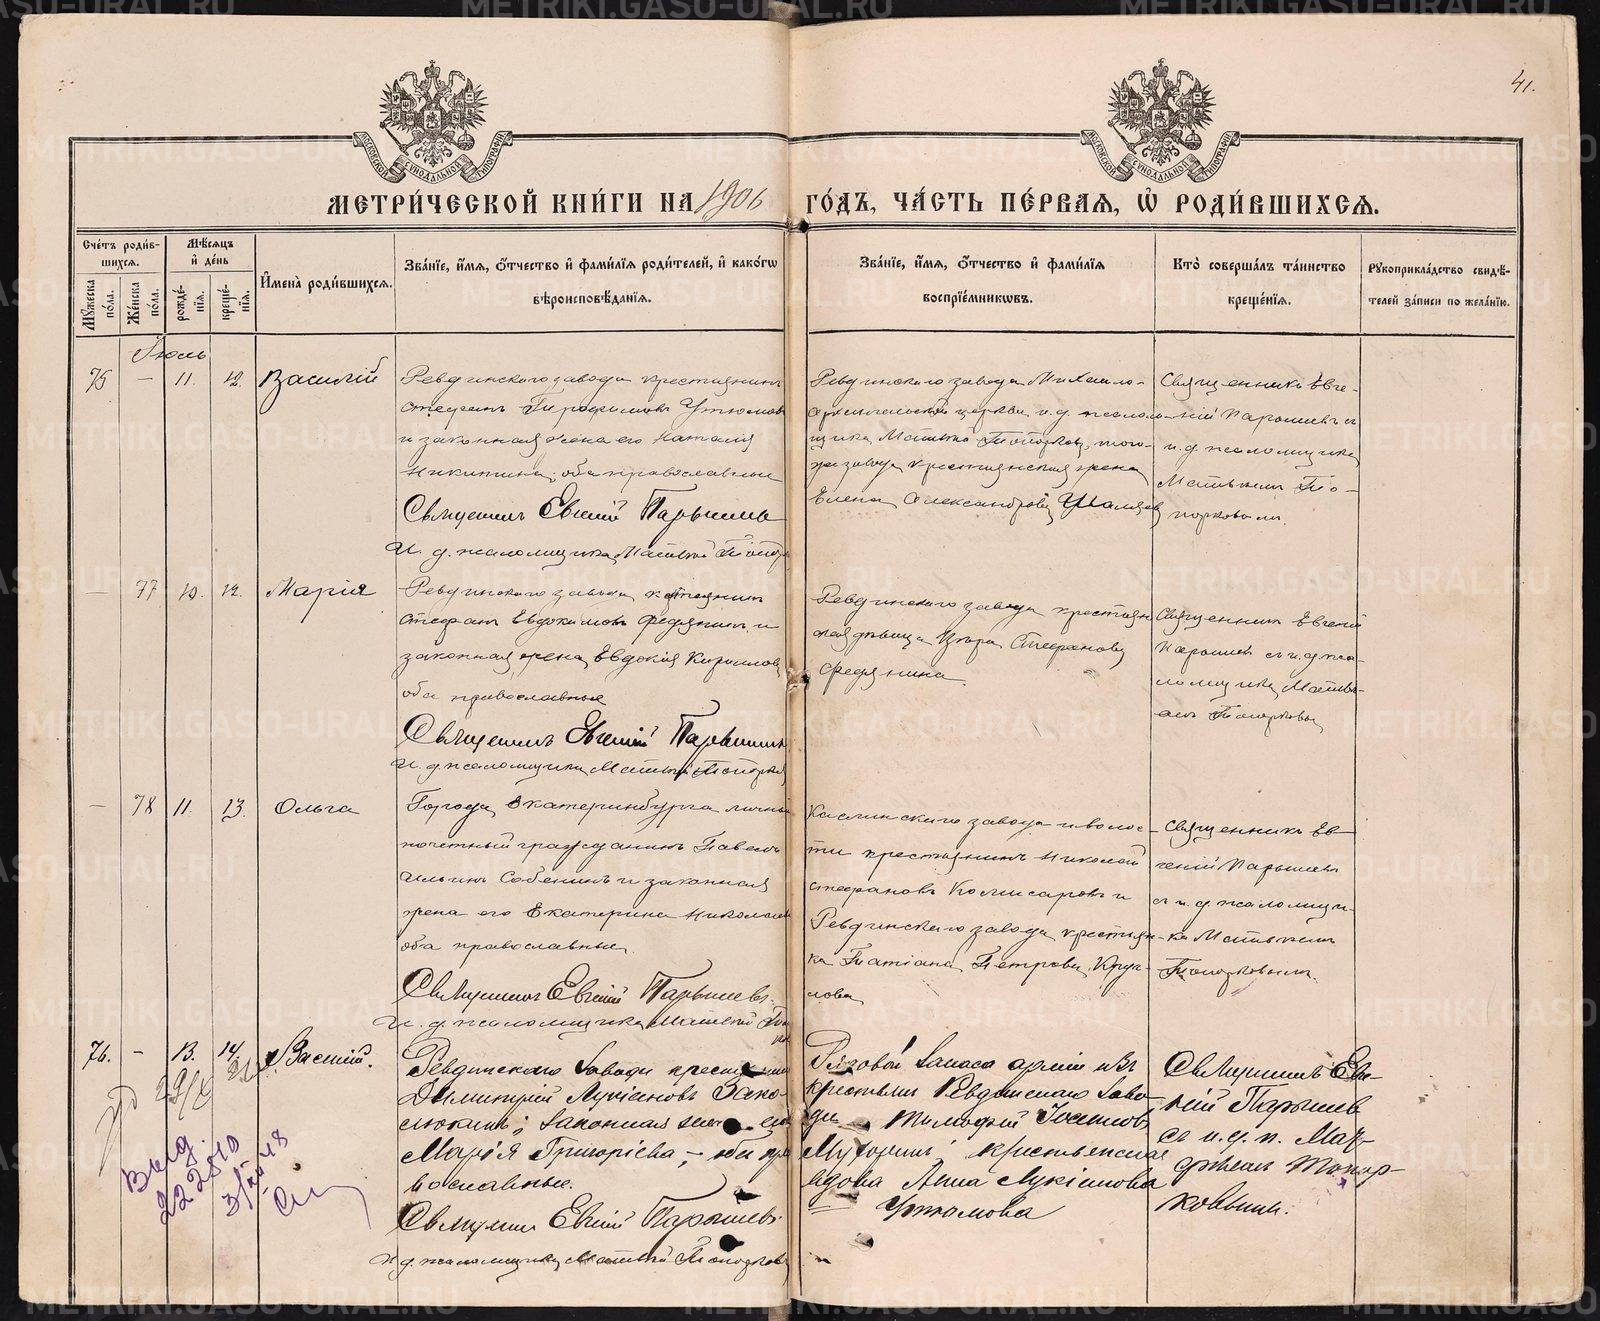 41.
МОСКОВСКОЙ СУНОДАЛЬНОЙ ТИПОГРАФІИ
МОСКОВСКОЙ СУНОДАЛЬНОЙ ТИПОГРАФІИ
МЕТРИ́ЧЕСКОЙ КНИ́ГИ НА 1906 ГО́ДЪ, ЧА́СТЬ ПЕ́РВАЯ, Ѡ РОДИ́ВШИХСЯ.
Сче́тъ роди́в-
шихся.
Мужеска по́ла.
Же́нска по́ла.
Мѣ́сяцъ
и де́нь
рожде́-
нія.
креще́-
нія.
Имена̀ роди́вшихся.
Зва́ніе, и́мя, о́тчество и фами́лія роди́телей, и како́гѡ
вѣроисповѣ́данія.
Зва́ніе, и́мя, о́тчество и фами́лія
воспріе́мниковъ.
Кто̀ соверша́лъ та́инство
креще́нія.
Рукоприкла́дство свидѣ́-
телей за́писи по жела́нію.
Іюль
75 — 11. 12. Василій
Ревдинскаго завода крестьянинъ
Стефанъ Утюмов
и законная жена его Наталія
Никитина, оба православные
Священникъ Евгеній Парышевъ
И. д. псаломщика Матвѣй
Ревдинскаго завода Михаило-
Архангельской церкви и. д. псалом-
щика Матвѣй Топорковъ, того-
же завода крестьянская жена
Елена Александрова
Священникъ Евге-
ній Парышевъ съ
и. д. псаломщика
Матвѣемъ То-
порковымъ.
— 77 10. 12. Марія
Ревдинскаго завода крестьянинъ
Стефанъ Евдокимовъ Федянинъ и
законная жена Евдокія Кирилова
оба православные
Священникъ Евгеній Парышевъ
И. д. псаломщика Матвѣй Топорков
Ревдинскаго завода крестьян
ская дѣвица Стефанова
Федянина
Священникъ Евгеній
Парышевъ съ и. д. пса-
ломщика Матвѣ-
емъ Топорковы
— 78 11. 13. Ольга
Города Екатеринбурга личный
почетный гражданинъ Павелъ
Ильинъ Собенинъ и законная
жена его Екатерина Николаев
оба православные.
Священникъ Евгеній Парышевъ.
И. д. псаломщика Матвѣй
Каслинскаго завода и волос-
ти крестьянинъ Николай
Стефановъ Комисаровъ и
Ревдинскаго завода крестьян-
ка Татіана Петрова Круг-
лова
Священникъ Ев-
геній Парышевъ
съ и. д. псаломщи-
ка Матвѣемъ
Топорковымъ.
76. — 13. 14. Василій.
Ревдинскаго завода
Димитрій Лукіановъ
законная его
Марія Григоріева, — оба пра
вославные.
Священникъ Евгеній Парышевъ.
И д. псаломщика Матвѣй Топорковъ
Рядовой запаса арміи изъ
крестьянъ Ревдинскаго заво-
да Тимофей
крестьянская
вдова Анна Лукіанова
Утюмова
Священникъ Евге-
ній Парышевъ
съ и. д. п. Мат-
вѣемъ Топор-
ковымъ.
Выд.
48
METRIKI.GASO-URAL.RU